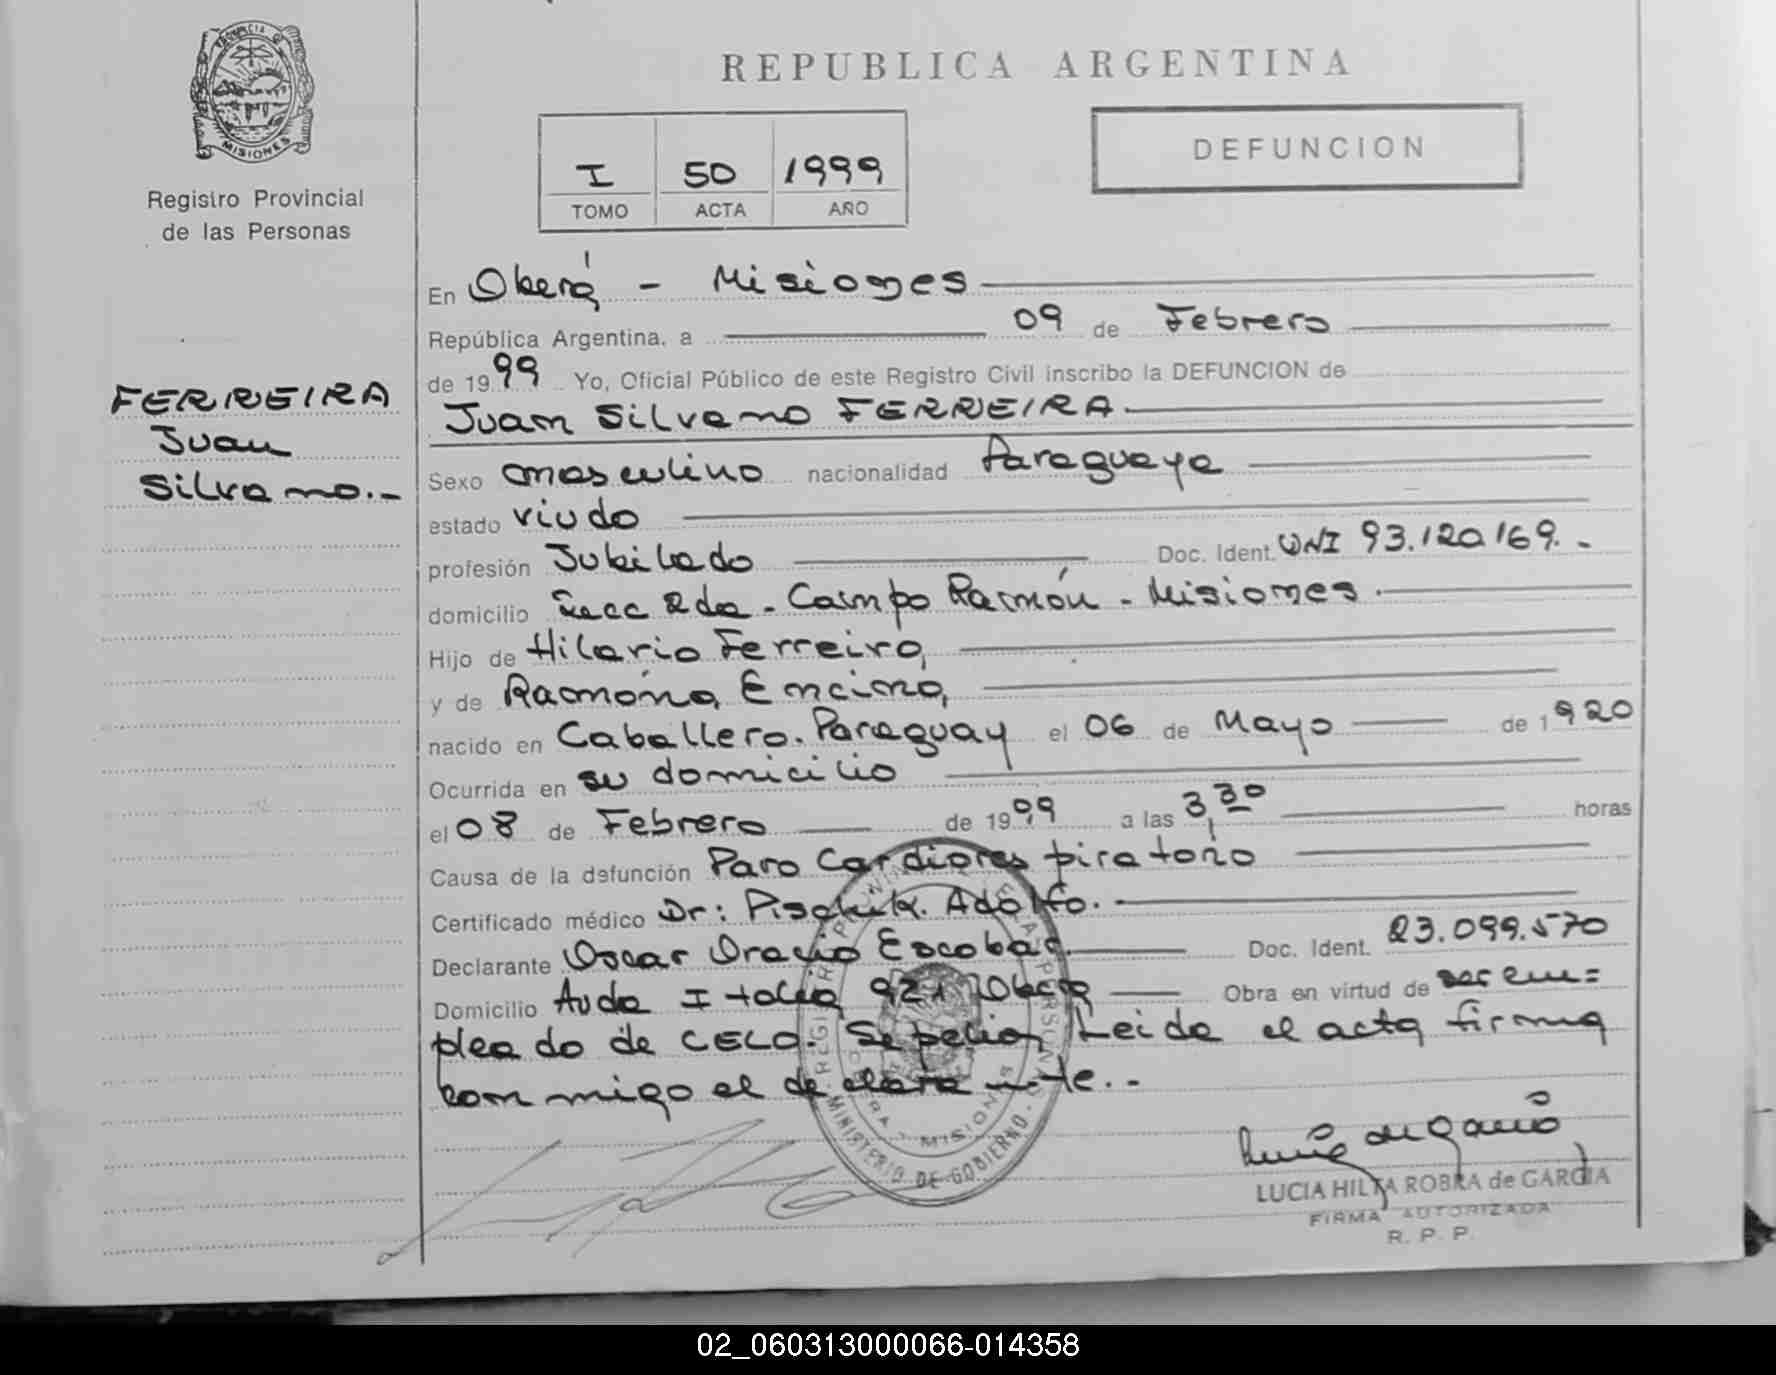 PROVINCIA DE
MISIONES
Registro Provincial
de las Personas
FERREIRA
Juan
Silvano.-
REPUBLICA ARGENTINA
I 50 1999
TOMO ACTA AÑO
DEFUNCION
En Oberá - Misiones
República Argentina, a 09 de Febrero
de 1999 Yo, Oficial Público de este Registro Civil inscribo la DEFUNCION de
Juan Silvano FERREIRA.
Sexo masculino nacionalidad Paraguaya
estado viudo
profesión Jubilado Doc. Ident. DNI 93.120.169.-
domicilio Secc 2da - Campo Ramón - Misiones.
Hijo de Hilario Ferreira,
y de Ramona Encina,
nacido en Caballero. Paraguay el 06 de Mayo de 1920
Ocurrida en su domicilio
el 08 de Febrero de 1999 a las 3,30 horas
Causa de la defunción Paro Cardiorespiratorio
Certificado médico Dr: Pischik. Adolfo.
Declarante Oscar Oracio Escobar Doc. Ident. 23.099.570
Domicilio Avda Italia 921 Oberá Obra en virtud de ser em=
pleado de CELO. Sepelios Leida el acta firma
conmigo el declarante.-
REGISTRO PROVINCIAL DE LAS PERSONAS
OBERA - MISIONES
MINISTERIO DE GOBIERNO
LUCIA HILTA ROBRA de GARCIA
FIRMA AUTORIZADA
R. P. P.
02_060313000066-014358